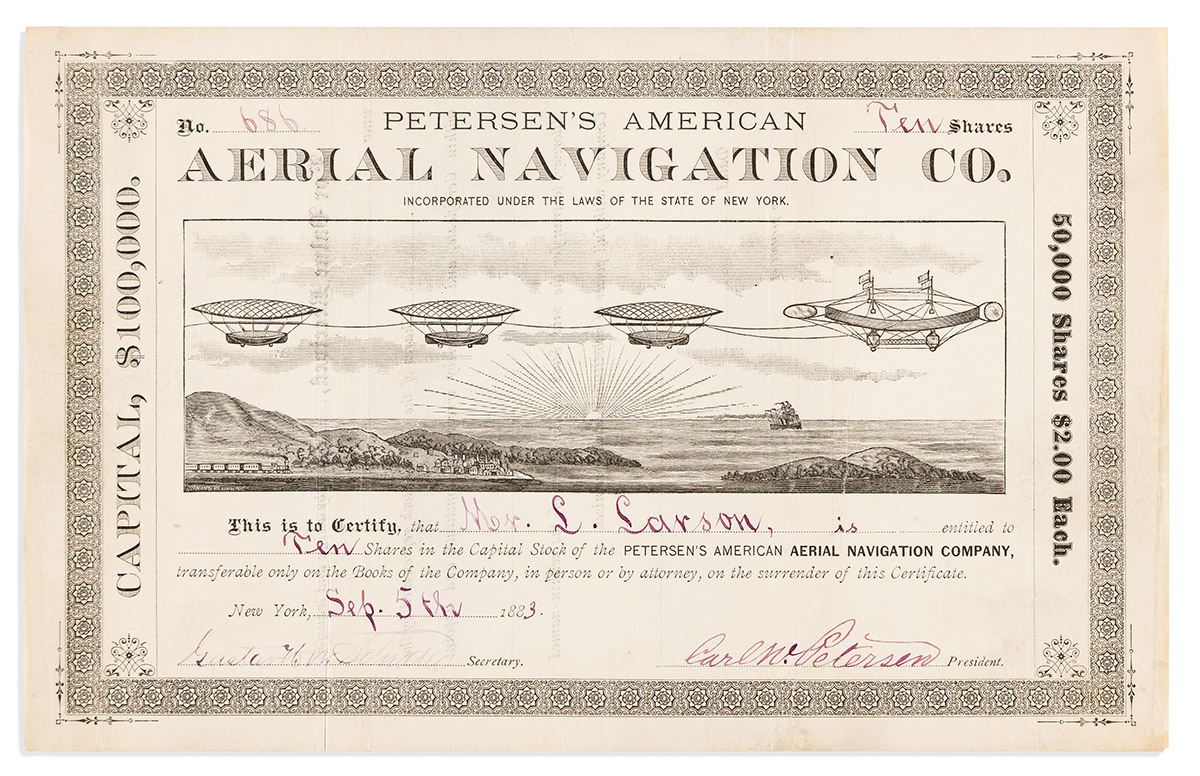 No. 686
PETERSEN'S AMERICAN
Ten Shares
AERIAL NAVIGATION CO.
INCORPORATED UNDER THE LAWS OF THE STATE OF NEW YORK.
CAPITAL, $100,000.
50,000 Shares $2.00 Each.
This is to Certify, that Mr. L. Larson, is entitled to
Ten Shares in the Capital Stock of the PETERSEN'S AMERICAN AERIAL NAVIGATION COMPANY,
transferable only on the Books of the Company, in person or by attorney, on the surrender of this Certificate.
New York, Sep. 5th 1883.
Secretary.
Carl W. Petersen President.